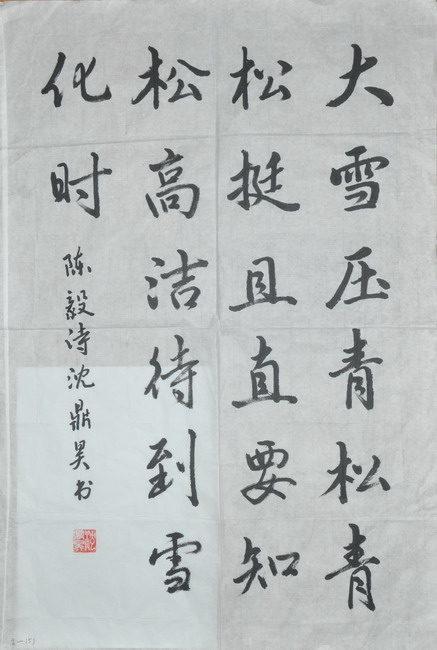 大雪压青松青
松挺且直要知
松高洁待到雪
化时
陈毅诗沈鼎昊书